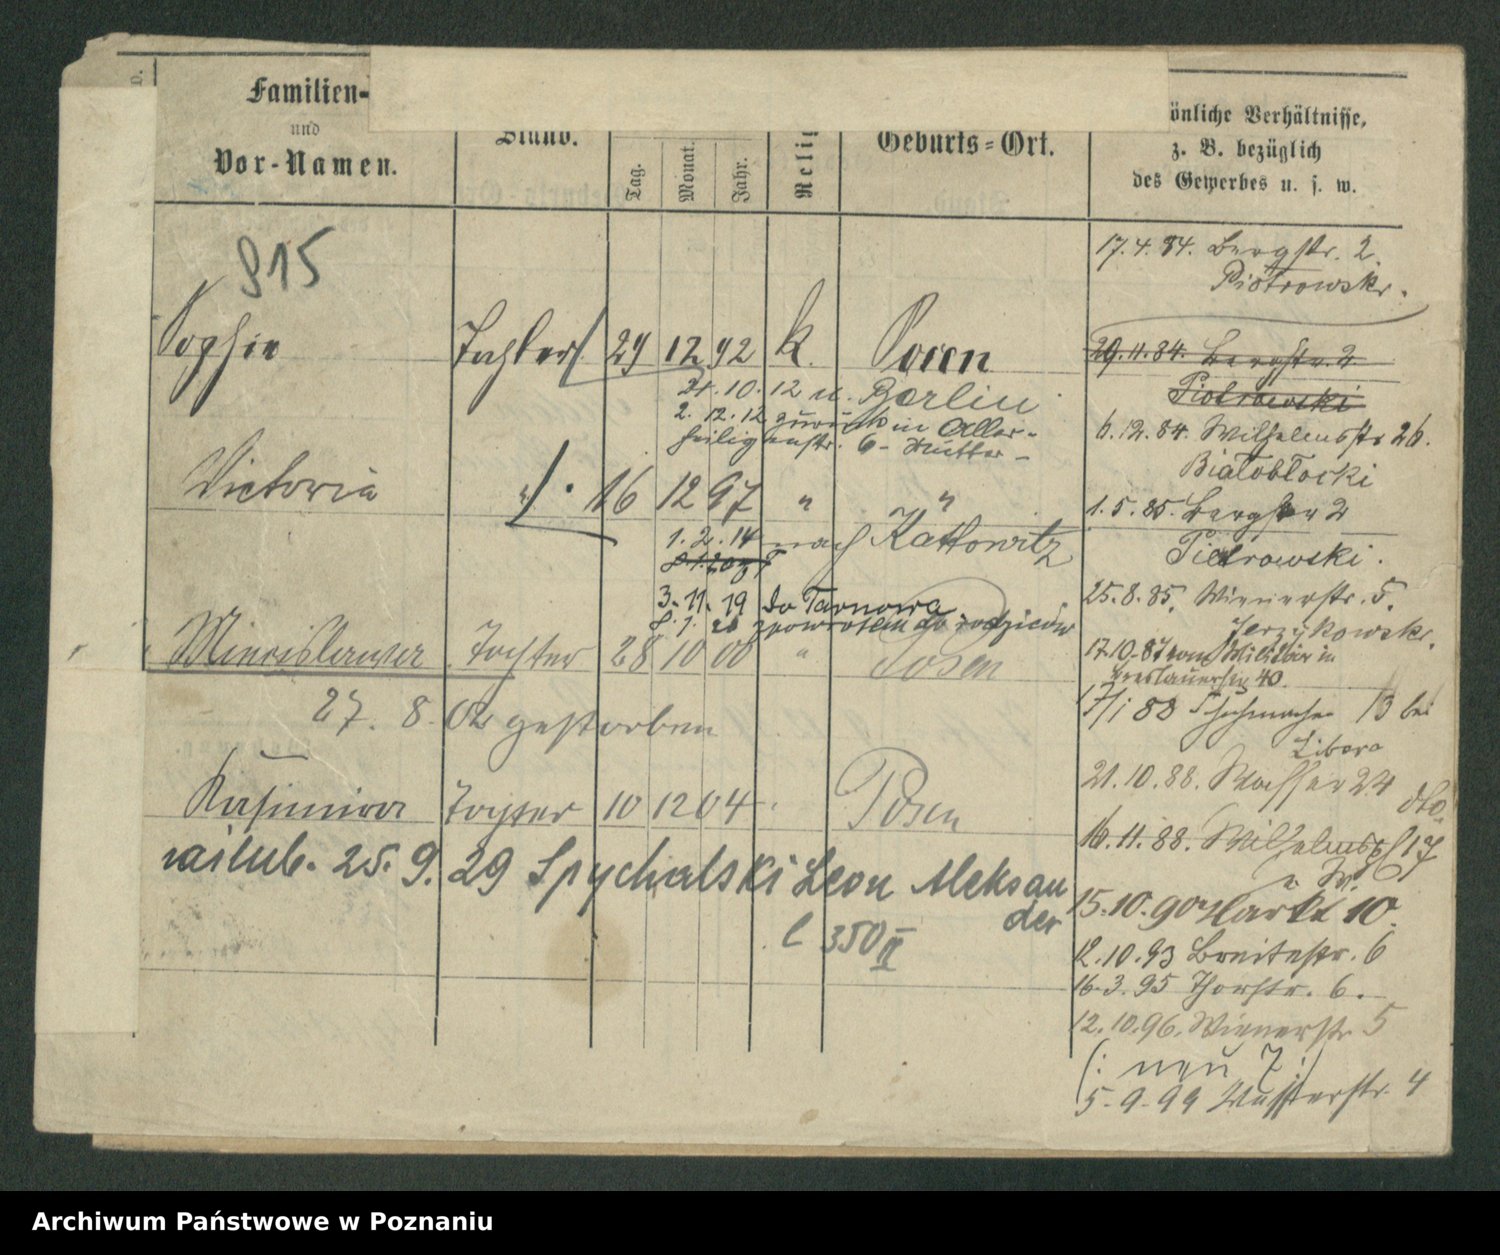 Familien-
und
Vor-Namen.
Stand.
Tag.
Monat.
Jahr.
Relig
Geburts-Ort.
önliche Verhältnisse,
z. B. bezüglich
des Gewerbes u. s. w.
915
Sophie Tochter 29 12 92 k. Posen
21. 10. 12 n. Berlin
2. 12. 12 zurück in Aller-
heiligenstr. 6 - Mutter -
Victoria " 16 12 97 " "
1. 2. 14 nach Kattowitz
3. 11. 19 do Tarnowa
8. 1. 20 zpowrotem do rodziców
Mierislawa Tochter 28 10 00 " Posen
27. 8. 02 gestorben
Kasimira Tochter 10 12 04 Posen
zaślub. 25. 9. 29 Spychalski Leon Aleksan
der
l 350 II
17. 4. 84. Bergstr. 2.
Piotrowski.
29. 11. 84. Bergstr. 2
Piotrowski
6. 12. 84. Wilhelmsstr 26.
Białobłocki
1. 5. 85. Bergstr 2
Piotrowski.
25. 8. 85. Wienerstr. 5.
Jerzykowski.
17. 10. 87 vom Militär in
Breslauerstr 40.
17/1 88 Schuhmacher 13 bei
Libera
21. 10. 88. Wasser 24 dto.
16. 11. 88. Wilhelmsst 17
15. 10. 90 Markt 10.
12. 10. 93 Breitestr. 6
16. 3. 95 Thorstr. 6.
12. 10. 96. Wienerstr. 5
(: neu 7 :)
5. 9. 99 Wasserstr. 4
Archiwum Państwowe w Poznaniu